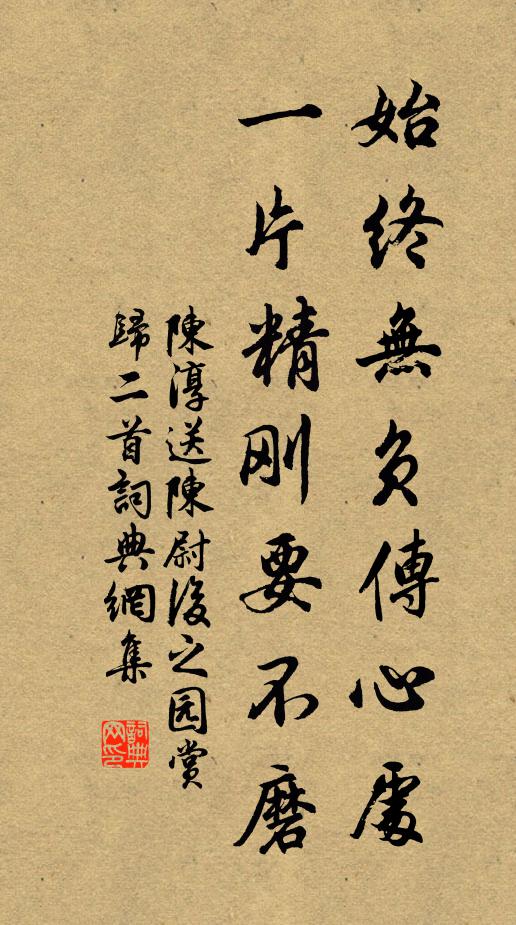 始終無負傳心處
一片精刚要不磨
陳淳送陳尉後之园赏
歸二首詞典網集
詞典
网印